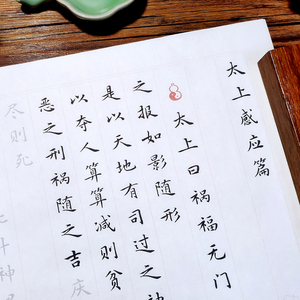 太上感应篇
太上曰祸福无门
之报如影随形
是以天地有司过之神
以夺人算算减则贫
恶之刑祸随之吉庆
尽则死 斗神